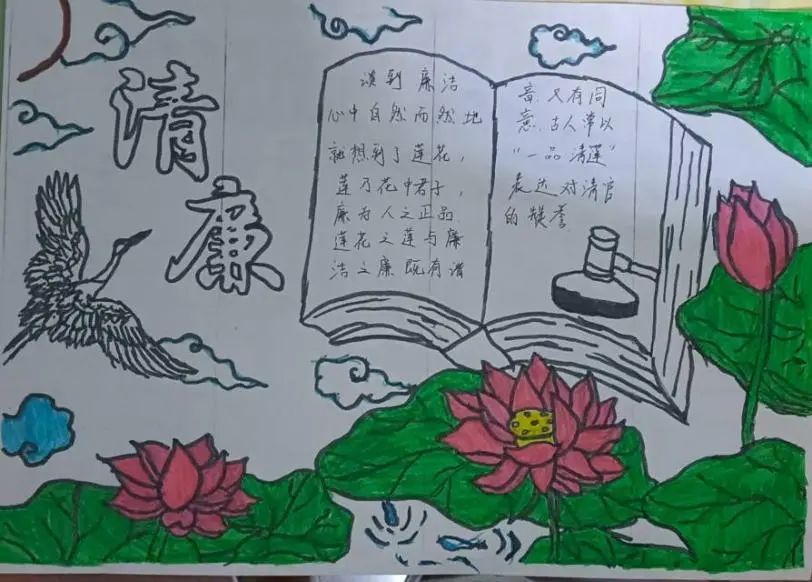 清
廉
谈到廉洁
心中自然而然地
就想到了莲花,
莲乃花中君子,
廉为人之正品.
莲花之莲与廉
洁之廉既有谐
音.又有同
意.古人常以
“一品清莲”
表达对清官
的赞誉